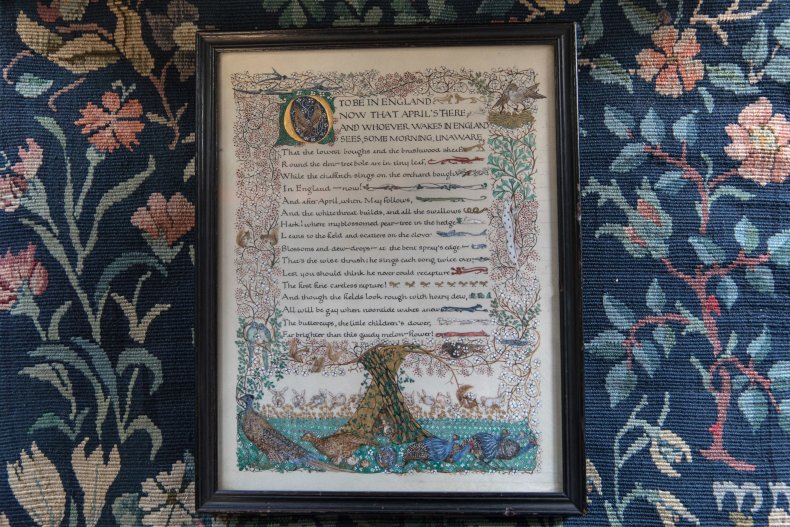 O TO BE IN ENGLAND
NOW THAT APRIL'S THERE
AND WHOEVER WAKES IN ENGLAND
SEES, SOME MORNING, UNAWARE,
That the lowest boughs and the brushwood sheaf
Round the elm-tree bole are in tiny leaf,
While the chaffinch sings on the orchard bough
In England — now!
And after April, when May follows,
And the whitethroat builds, and all the swallows
Hark! where my blossomed pear-tree in the hedge
Leans to the field and scatters on the clover
Blossoms and dew-drops — at the bent spray's edge —
That's the wise thrush; he sings each song twice over,
Lest you should think he never could recapture
The first fine careless rapture!
And though the fields look rough with hoary dew,
All will be gay when noontide wakes anew
The buttercups, the little children's dower,
Far brighter than this gaudy melon-flower!